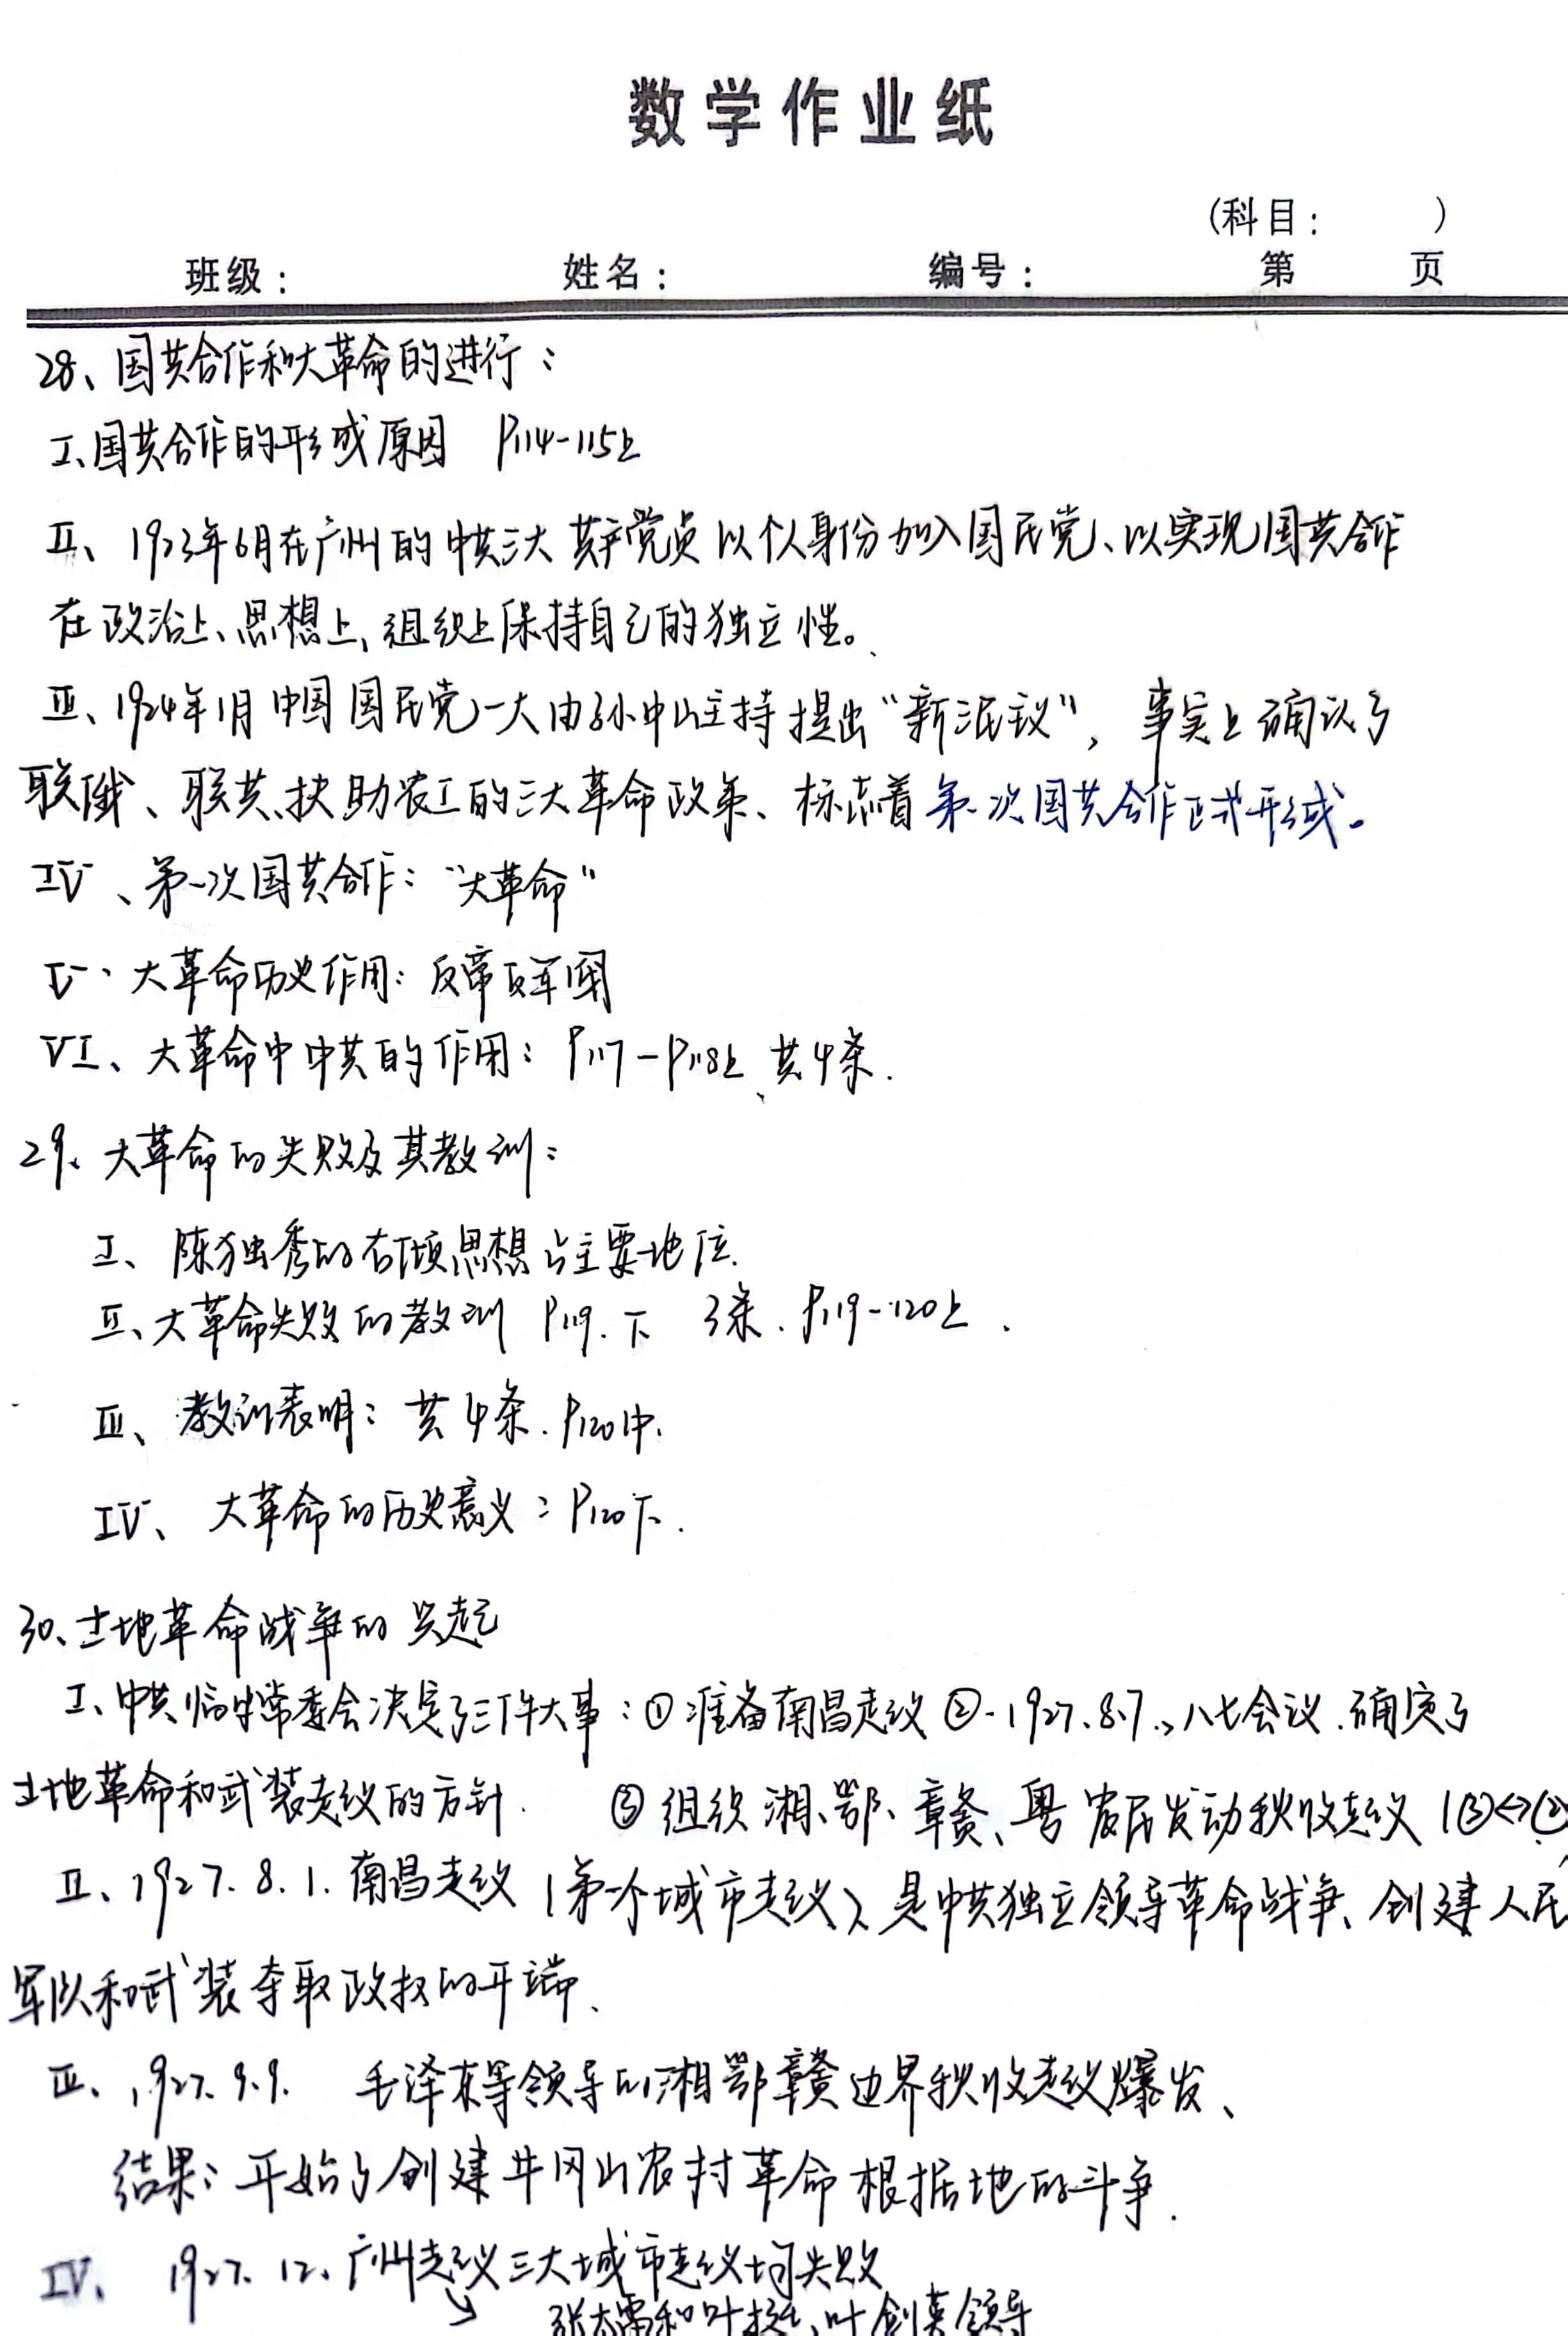 数学作业纸
(科目: )
班级: 姓名: 编号: 第 页
28、国共合作和大革命的进行:
I、国共合作的形成原因 P114-115上
II、1923年6月在广州的中共三大 共产党员以个人身份加入国民党、以实现国共合作
在政治上、思想上、组织上保持自己的独立性。
III、1924年1月中国国民党一大由孙中山主持提出“新三民主义”, 事实上确认了
联俄、联共、扶助农工的三大革命政策、标志着第一次国共合作正式形成。
IV、第一次国共合作:“大革命”
V、大革命历史作用:反帝反军阀
VI、大革命中中共的作用:P117-P118上、共4条.
29、大革命的失败及其教训:
I、陈独秀的右倾思想占主要地位.
II、大革命失败的教训 P119.下 3条.P119-120上.
III、教训表明:共4条.P120中.
IV、大革命的历史意义:P120下.
30、土地革命战争的兴起
I、中共临时中央常委会决定了三件大事:①准备南昌起义 ②.1927.8.7.,八七会议.确定了
土地革命和武装起义的方针. ③组织湘、鄂、赣、粤农民发动秋收起义 (③<->②
II、1927.8.1.南昌起义(第一个城市起义)、是中共独立领导革命战争、创建人民
军队和武装夺取政权的开端、
III、1927.9.9. 毛泽东等领导的湘鄂赣边界秋收起义爆发、
结果:开始了创建井冈山农村革命根据地的斗争.
IV、1927.12、广州起义 三大城市起义均失败
↘ 张太雷和叶挺、叶剑英领导